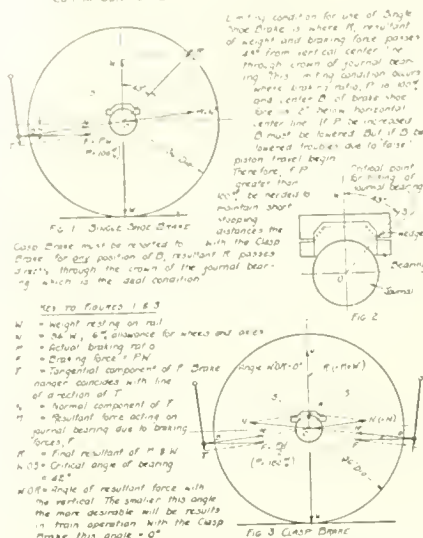 Limiting condition for use of Single
Shoe Brake is where R, resultant
of weight and braking force passes
from vertical center line
through crown of journal bear-
ing. This limiting condition occurs
where braking ratio, P is 100%
and center B of brake shoe
face is 2" below horizontal
center line. If P be increased
B must be lowered. But if B be
lowered troubles due to false
piston travel begin.
Therefore, if P
greater than
100% be needed to
maintain short
stopping
distances the
FIG. 1 SINGLE SHOE BRAKE
Clasp Brake must be resorted to with the Clasp
Brake for any position of B, resultant R passes
directly through the crown of the journal bear-
ing which is the ideal condition
Critical point
for tilting of
journal bearing
Wedge
Bearing
Journal
FIG 2
KEY TO FIGURES 1 & 3
W = Weight resting on rail
allowance for wheels and axles
P = Actual braking ratio
F = Braking force = PW
T = Tangential component of F Brake
hanger coincides with line
of direction of T
N = Normal component of F
M = Resultant force acting on
journal bearing due to braking
forces, F
R = Final resultant of M & W
WOS = Critical angle of bearing
= 42°
WOR = Angle of resultant force with
the vertical The smaller this angle
the more desirable will be results
in train operation With the Clasp
Brake this angle = 0°
Angle WOR = 0°
FIG 3 CLASP BRAKE